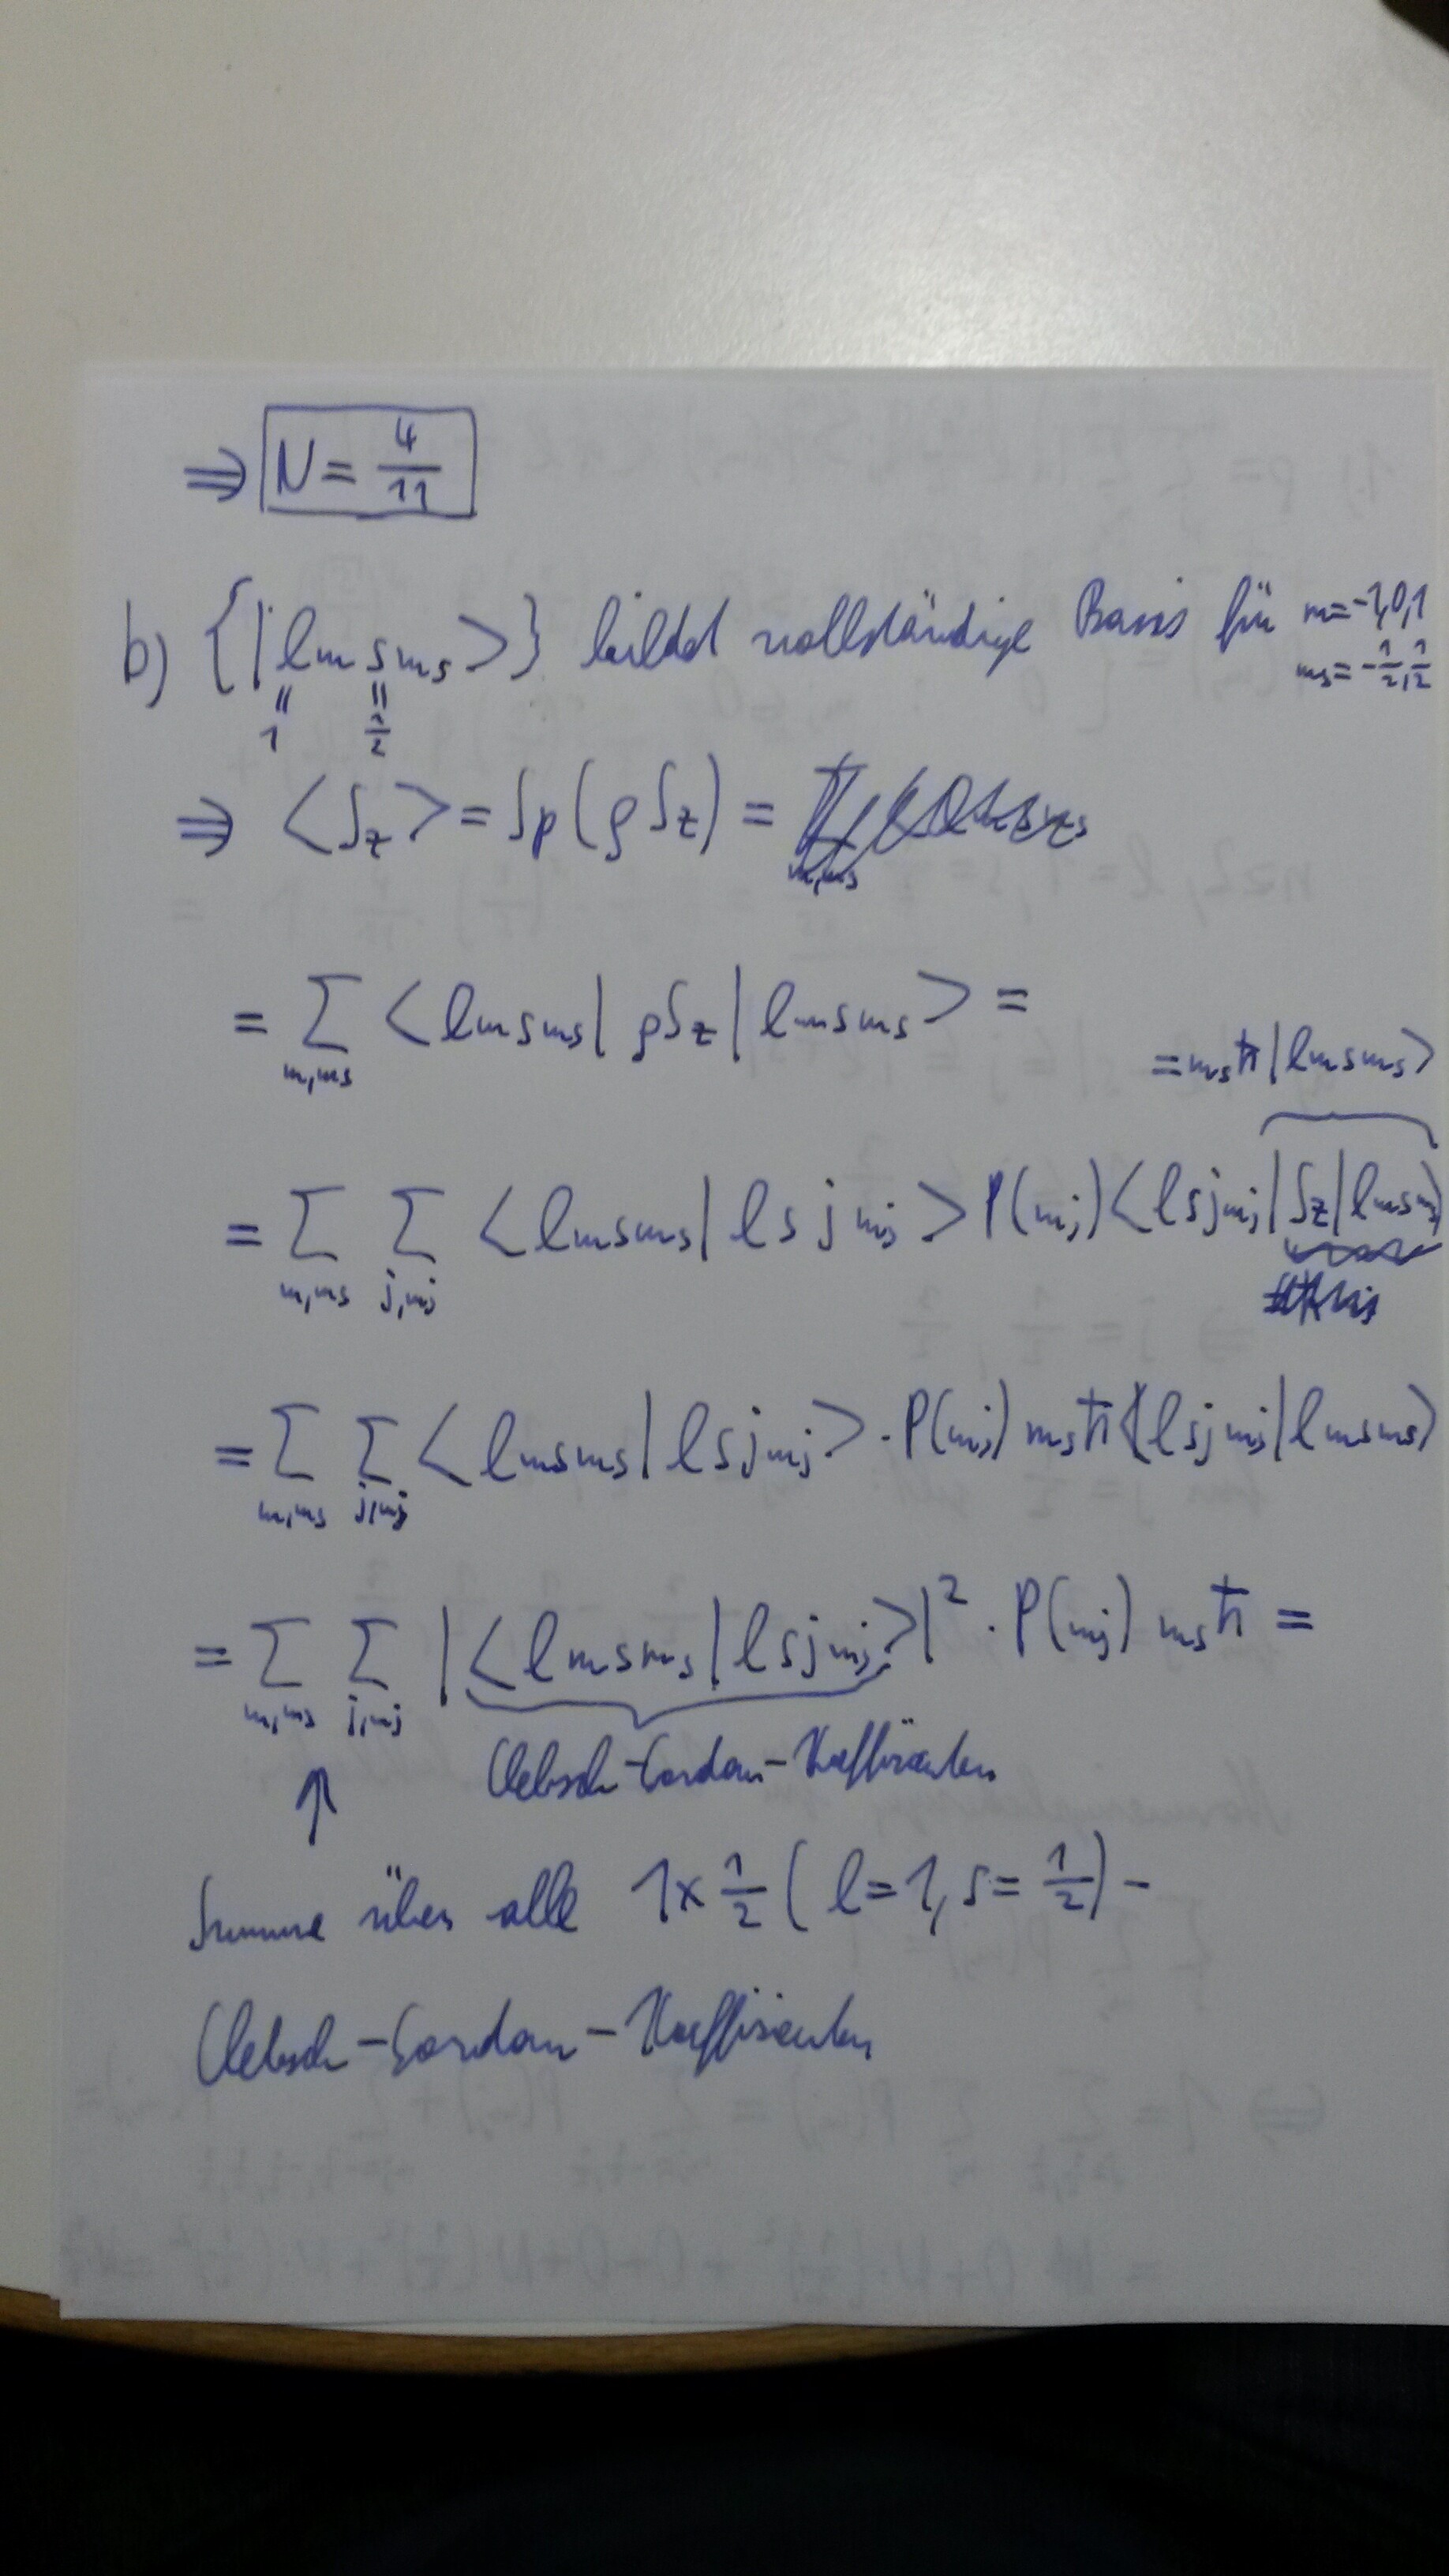 ⇒ N = 4/11
b) {|l m s m_s >} bildet vollständige Basis für m = -1,0,1
m_s = -1/2, 1/2
" "
1 1/2
⇒ <S_z> = Sp(ρ S_z) =
m,m_s
= Σ_{m,m_s} <l m s m_s| ρ S_z |l m s m_s> =
= m_s ħ |l m s m_s>
= Σ_{m,m_s} Σ_{j,m_j} <l m s m_s | l s j m_j> P(m_j) <l s j m_j | S_z | l m s m_s>
= Σ_{m,m_s} Σ_{j,m_j} <l m s m_s | l s j m_j> · P(m_j) m_s ħ <l s j m_j | l m s m_s>
= Σ_{m,m_s} Σ_{j,m_j} |<l m s m_s | l s j m_j>|² · P(m_j) m_s ħ =
↑ Clebsch-Gordan-Koeffizienten
Summe über alle 1 x 1/2 (l = 1, s = 1/2) -
Clebsch-Gordan-Koeffizienten